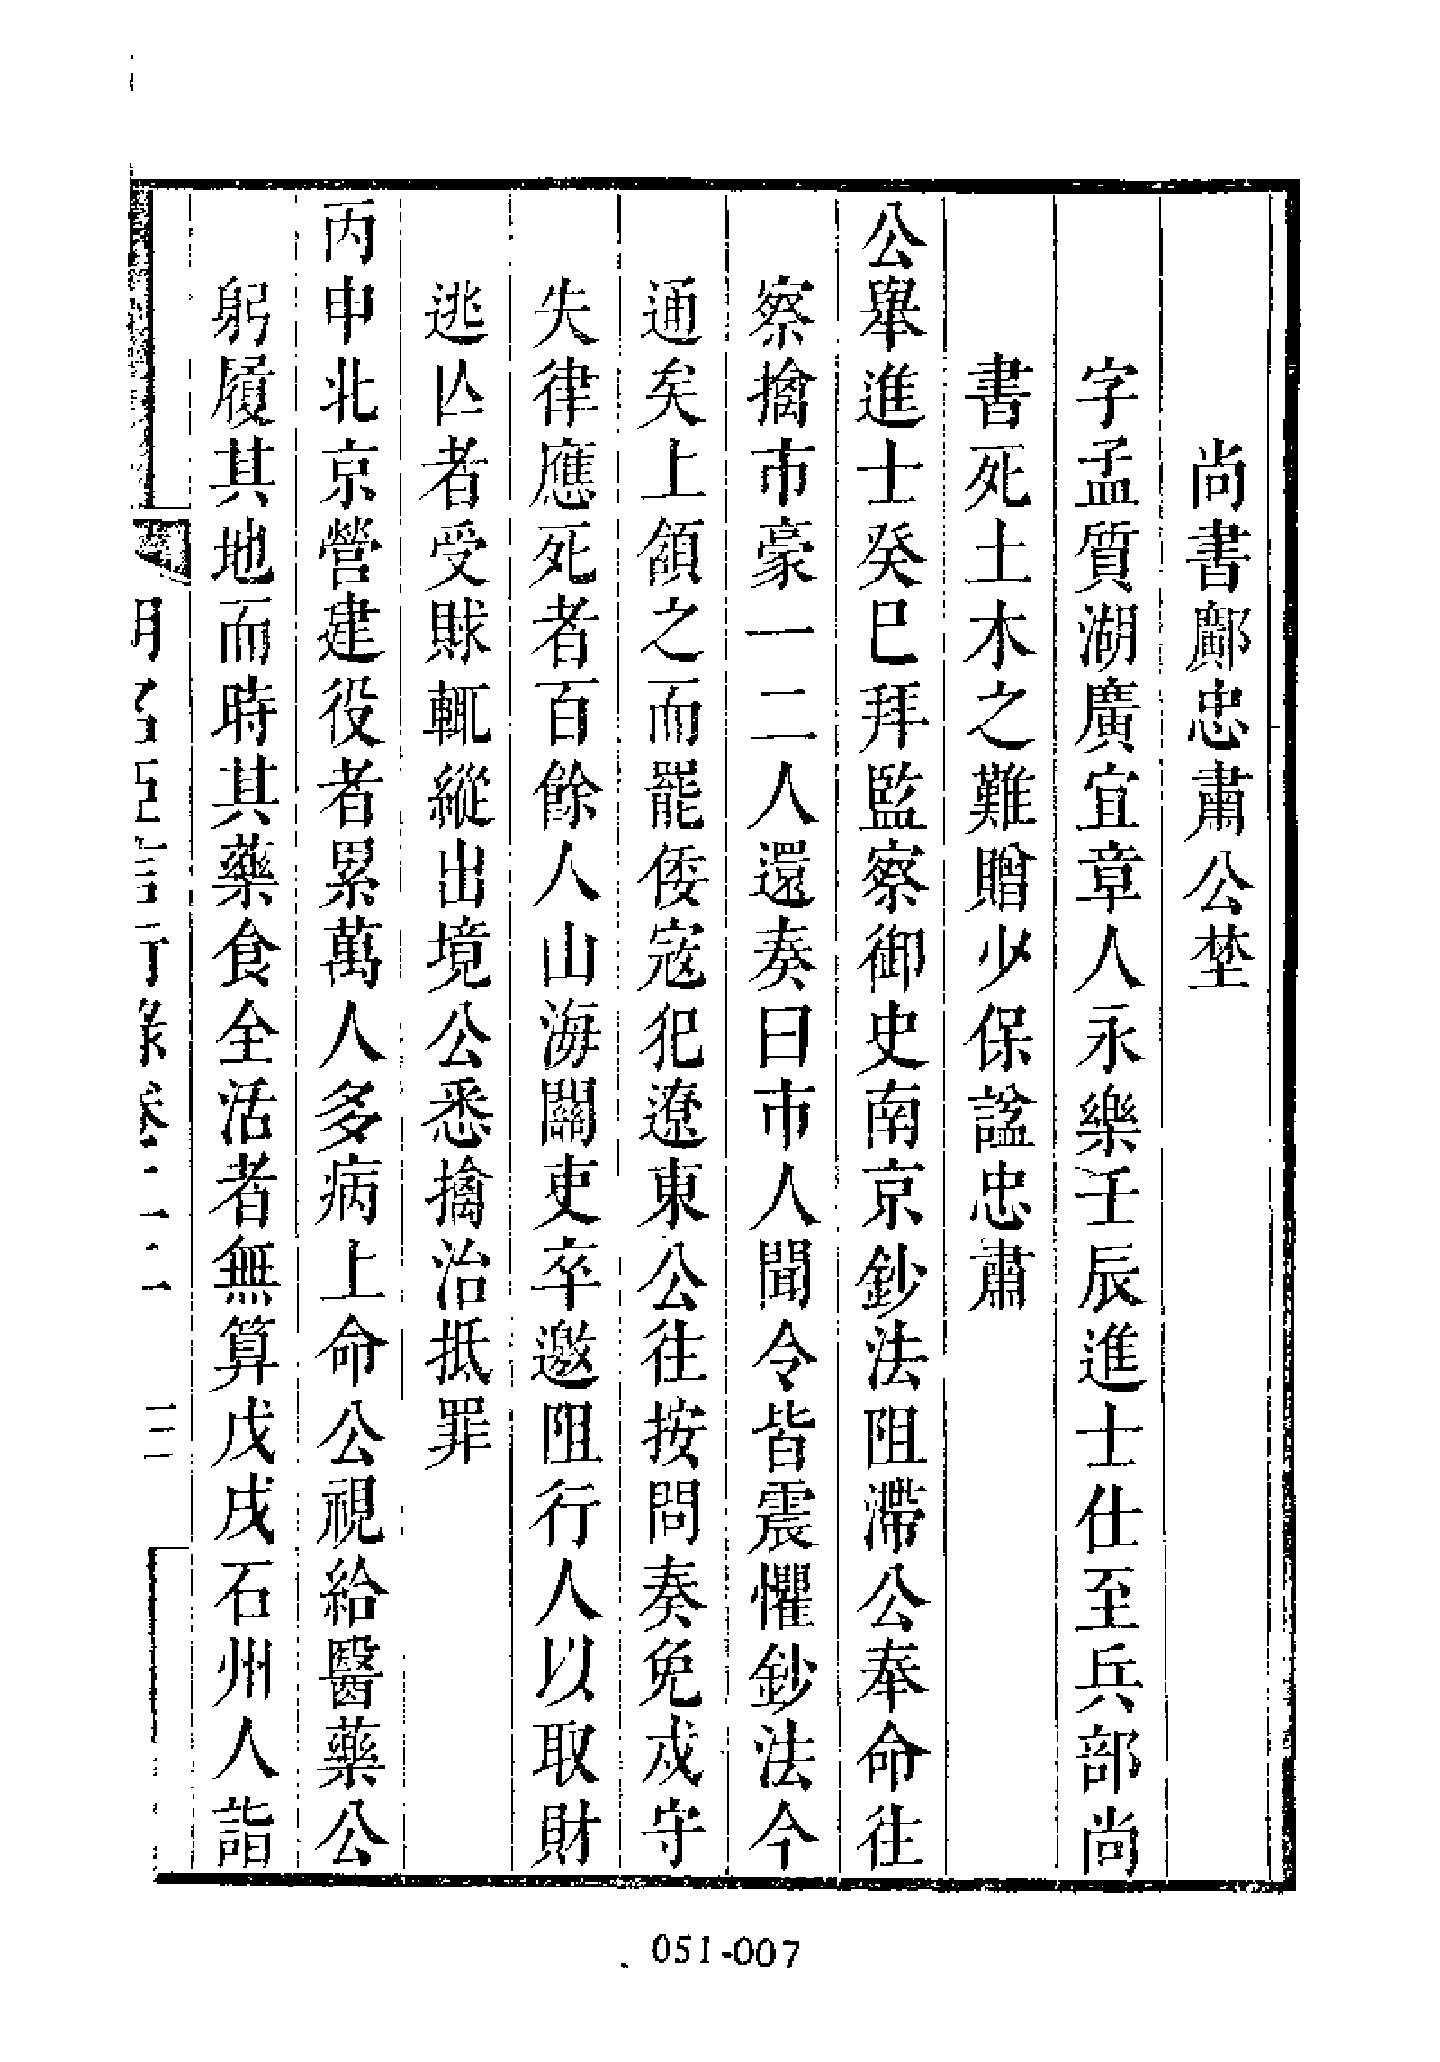 尚書鄺忠肅公埜
字孟質湖廣宜章人永樂壬辰進士仕至兵部尚
書死土木之難贈少保諡忠肅
公舉進士癸巳拜監察御史南京鈔法阻滯公奉命往
察擒市豪一二人還奏曰市人聞令皆震懼鈔法今
通矣上頷之而罷倭寇犯遼東公往按問奏免戍守
失律應死者百餘人山海關吏卒邀阻行人以取財
逃亾者受賕輒縱出境公悉擒治抵罪
丙申北京營建役者累萬人多病上命公視給醫藥公
躬履其地而時其藥食全活者無算戊戌石州人詣
明名臣言行錄卷二二 三
051-007